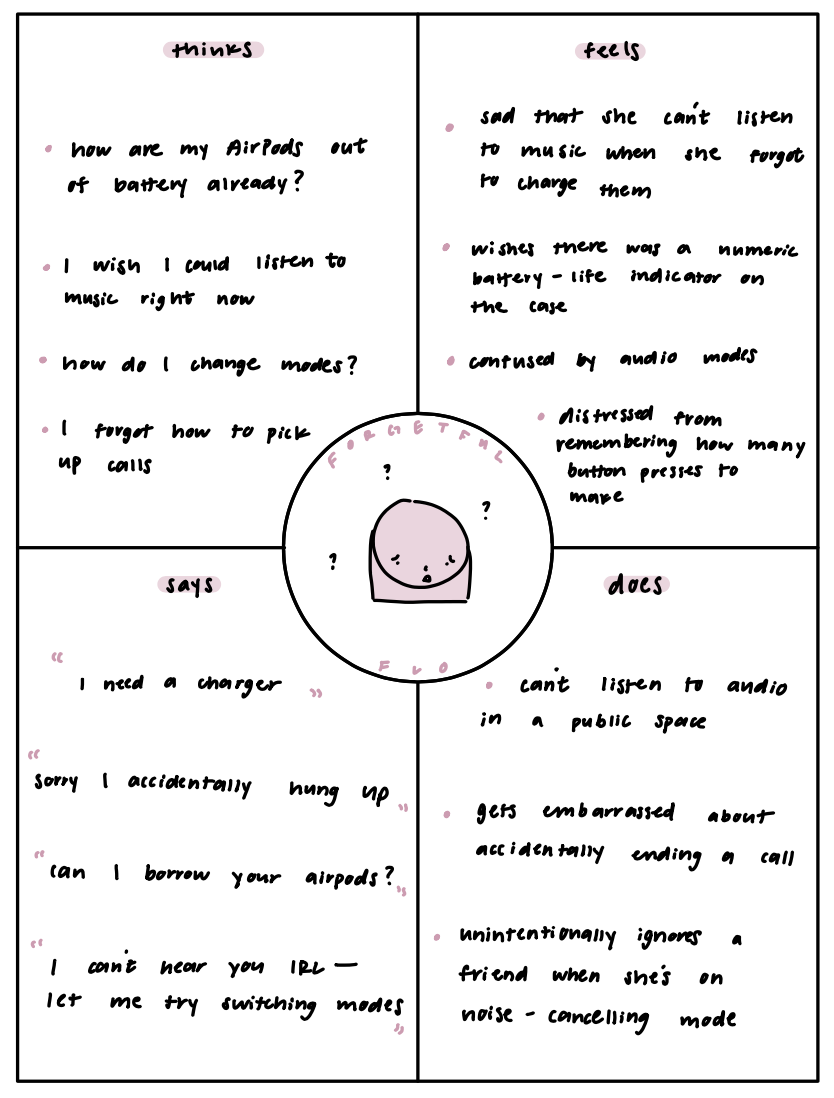 thinks
• how are my AirPods out
of battery already?
• I wish I could listen to
music right now
• how do I change modes?
• I forgot how to pick
up calls
feels
• sad that she can't listen
to music when she forgot
to charge them
• wishes there was a numeric
battery-life indicator on
the case
• confused by audio modes
• distressed from
remembering how many
button presses to
make
FORGETFUL
?
?
?
FLO
says
"I need a charger"
"sorry I accidentally hung up"
"can I borrow your airpods?"
"I can't hear you IRL —
let me try switching modes"
does
• can't listen to audio
in a public space
• gets embarrassed about
accidentally ending a call
• unintentionally ignores a
friend when she's on
noise-cancelling mode